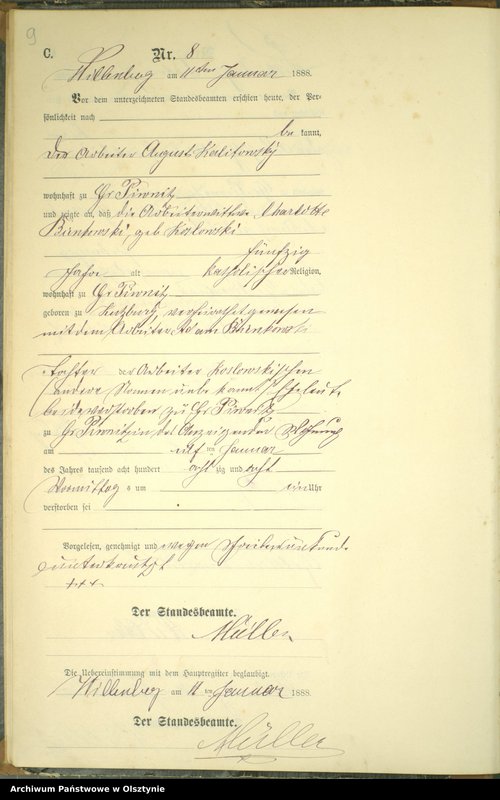 9
C.
Nr. 8
Willenberg am 11ten Januar 1888.
Vor dem unterzeichneten Standesbeamten erschien heute, der Per-
sönlichkeit nach
be kannt,
der Arbeiter August
wohnhaft zu Gr Piwnitz
und zeigte an, daß die Arbeiterwittwe Charlotte
geb Koslowski
fünfzig
Jahre alt katholischer Religion,
wohnhaft zu Gr Piwnitz
geboren zu verheirathet gewesen
mit dem Arbeiter
Tochter der Arbeiter Koslowskischen
andere Namen unbekannt Eheleute
beide verstorben zu Gr Piwnitz
zu Gr Piwnitz in des Anzeigenden Wohnung
am elf ten Januar
des Jahres tausend acht hundert acht zig und acht
Vormittag s um ein Uhr
verstorben sei
Vorgelesen, genehmigt und wegen Schreibensunkunde
unterkreuzt
+++
Der Standesbeamte.
Müller
Die Uebereinstimmung mit dem Hauptregister beglaubigt.
Willenberg am 11 ten Januar 1888.
Der Standesbeamte.
Müller
Archiwum Państwowe w Olsztynie